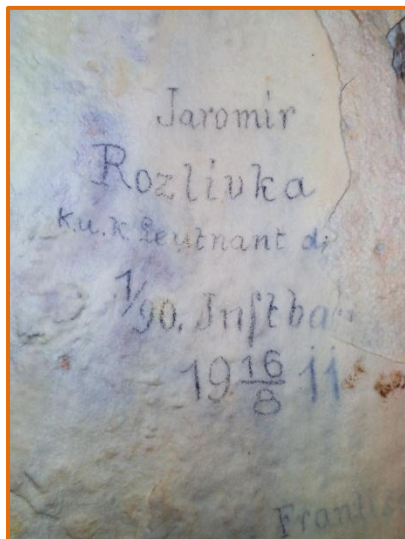 Jaromir
Rozlivka
K.u.K Leutnant d.
1/90. Inftba
19 16/8 11
Frantis